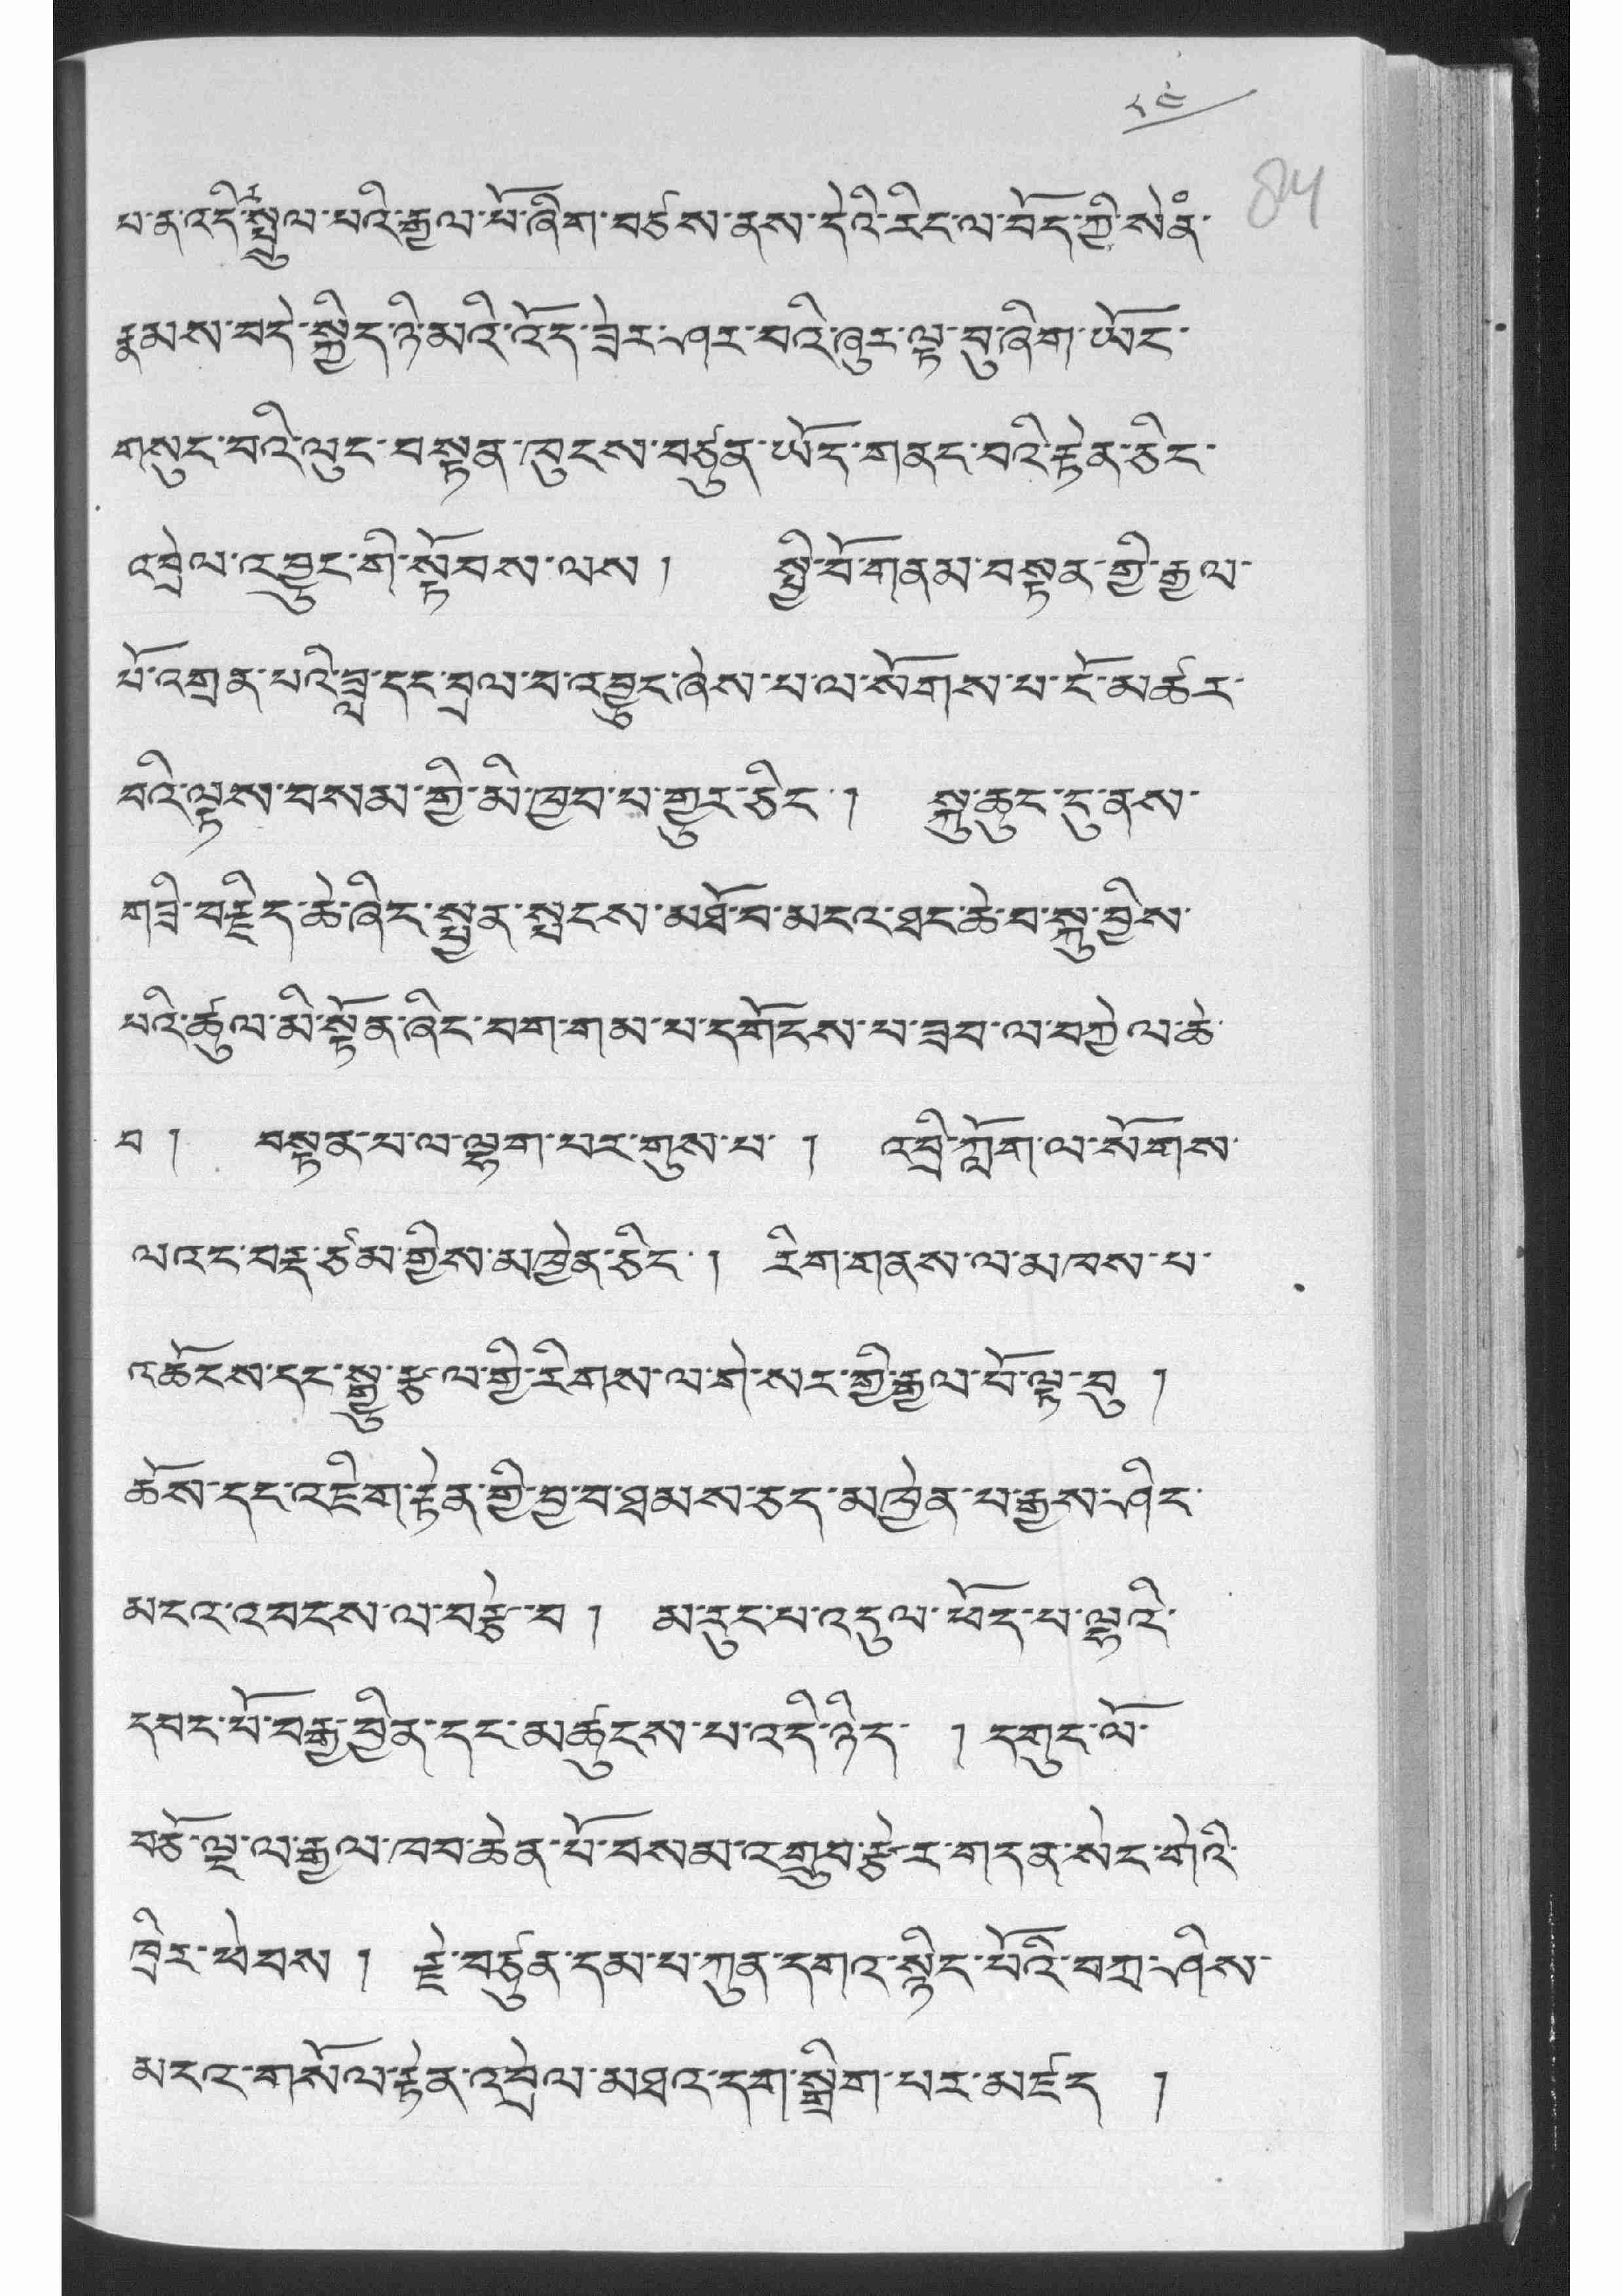 ༨༤
84
པ་ན་འདི་སྤྲུལ་པའི་རྒྱལ་པོ་ཞིག་བཙས་ནས་དེའི་རིང་ལ་བོད་ཀྱི་སེནཾ་
རྣམས་བདེ་སྐྱིད་ཉི་མའི་འོད་ཟེར་ཤར་བའི་ཞུར་ལྟ་བུ་ཞིག་ཡོང་
གསུང་བའི་ལུང་བསྟན་ཁུངས་བཙུན་ཡོད་གནད་བའི་རྟེན་ཅིང་
འབྲེལ་འབྱུང་གི་སྟོབས་ལས། སྤྱི་བོ་གནམ་བསྟན་གྱི་རྒྱལ་
པོ་འགྲན་པའི་ཟླ་དང་བྲལ་བ་འབྱུང་ཞེས་པ་ལ་སོགས་པ་ངོ་མཚར་
བའི་ལྟས་བསམ་གྱི་མི་ཁྱབ་པ་གྱུར་ཅིང་། སྐུ་ཆུང་དུ་ནས་
གཟི་བརྗིད་ཆེ་ཞིང་སྤྱན་སྤངས་མཐོ་བ་མངའ་ཐང་ཆེ་བ་སྐུ་བྱིས་
པའི་ཚུལ་མི་སྟོན་ཞིང་བག་གམ་པ་དགོངས་པ་ཟབ་ལ་བཀྱེལ་ཆེ་
བ། བསྟན་པ་ལ་ལྷག་པར་གུས་པ་། འབྲི་ཀློག་ལ་སོགས་
ལའང་བརྡ་ཙམ་གྱིས་མཁྱེན་ཅིང་། རིག་གནས་ལ་མཁས་པ་
འཆོངས་དང་སྒྱུ་རྩལ་གྱི་རིགས་ལ་གེ་སར་གྱི་རྒྱལ་པོ་ལྟ་བུ།
ཆོས་དང་འཇིག་རྟེན་གྱི་བྱ་བ་ཐམས་ཅད་མཁྱེན་པ་རྒྱས་ཤིང་
མངའ་འབངས་ལ་བརྩེ་བ། མ་རུང་པ་འདུལ་ཕོད་པ་ལྷའི་
དབང་པོ་བརྒྱ་བྱིན་དང་མཚུངས་པ་འདི་ཉིད་ །དགུང་ལོ་
བཅོ་ལྔ་ལ་རྒྱལ་ཁབ་ཆེན་པོ་བསམ་འགྲུབ་རྩེར་གདན་སེང་གེའི་
ཁྲིར་ཕེབས། རྗེ་བཙུན་དམ་པ་ཀུན་དགའ་སྙིང་པོའི་བཀྲ་ཤིས་
མངའ་གསོལ་རྟེན་འབྲེལ་མཐའ་དག་སྒྲིག་པར་མཛད །